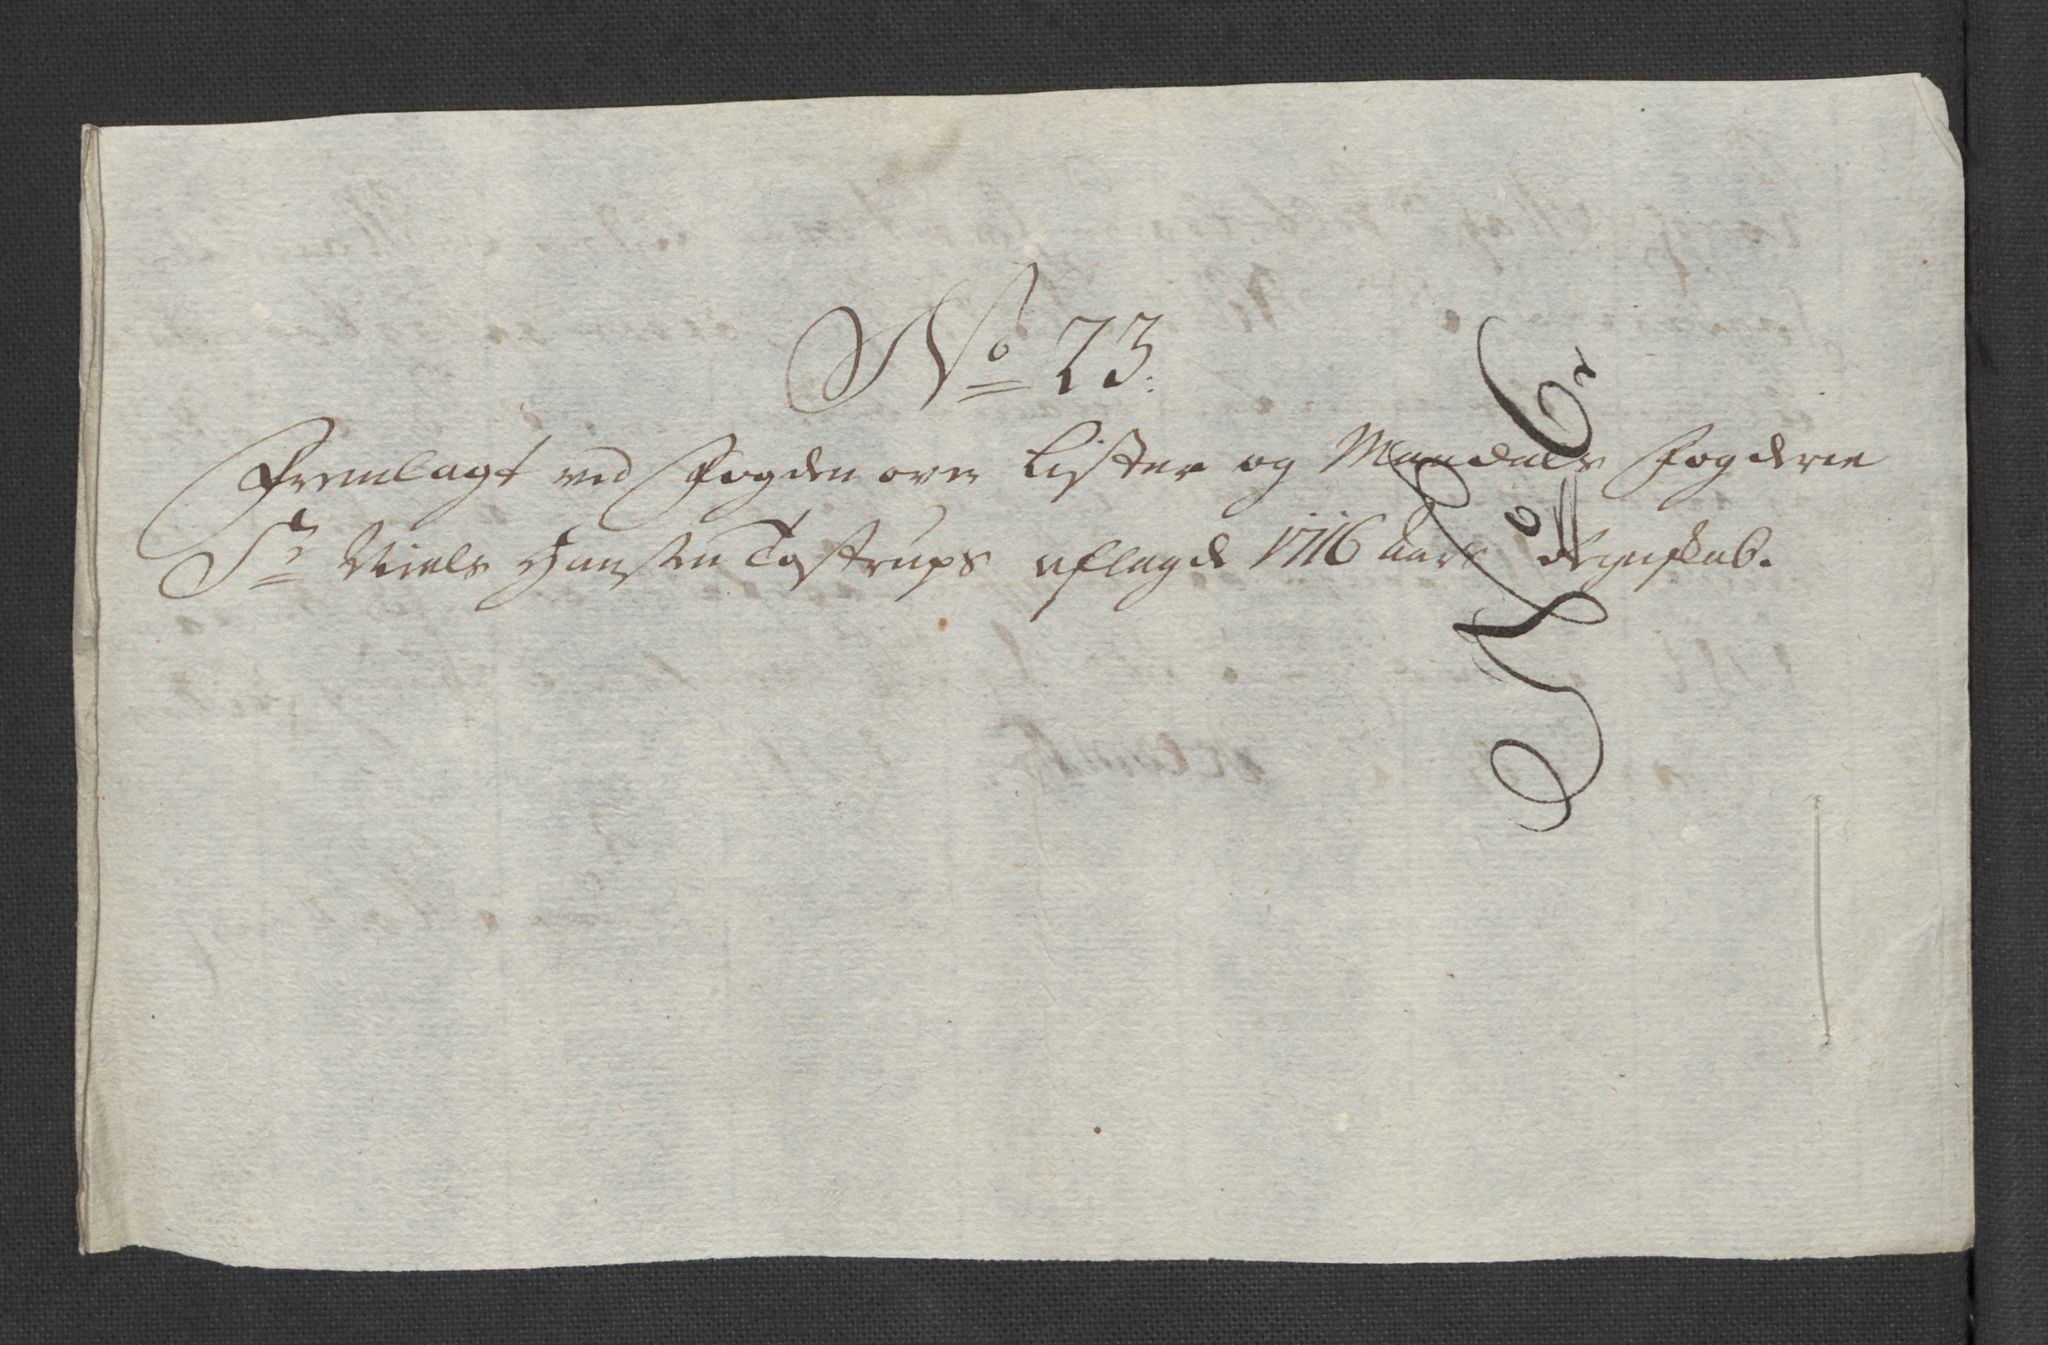 No 23.
Fremlagt ved Fogden over Lister og Mandals Fogderie
Sr Niels Hansen Tostrups aflagde 1716 aars Regnskab.
No 6